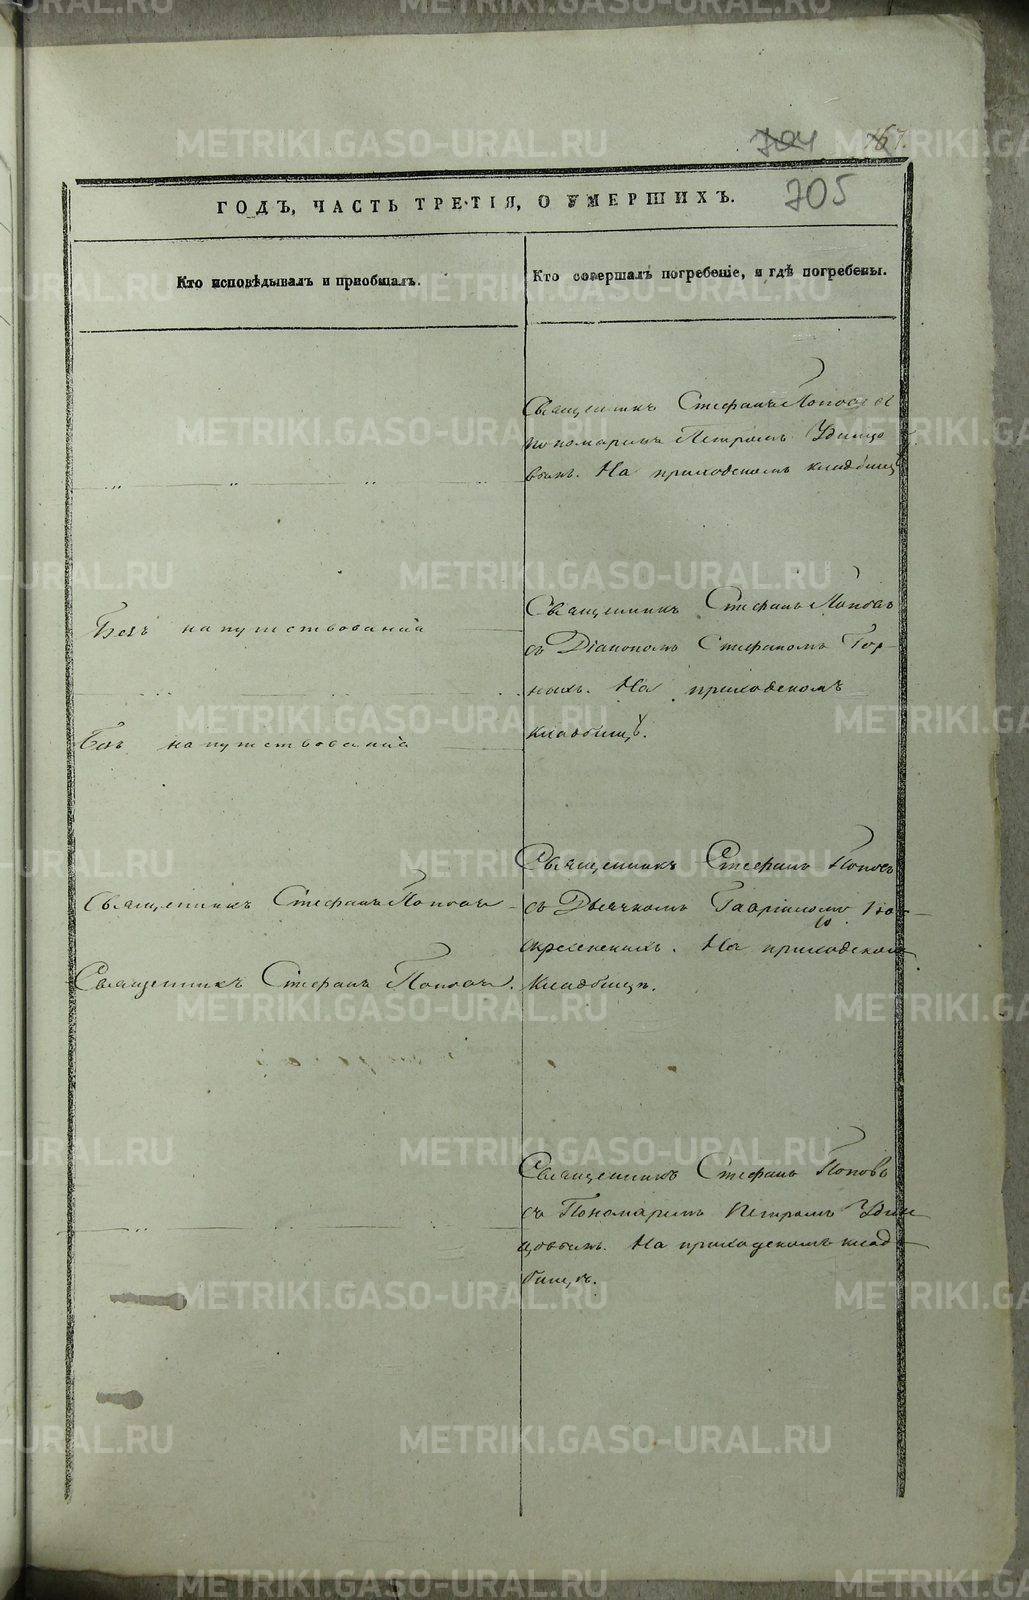 704 167.
705
ГОДЪ, ЧАСТЬ ТРЕТІЯ, О УМЕРШИХЪ.
Кто исповѣдывалъ и пріобщалъ.
Кто совершалъ погребеніе, и гдѣ погребены.
Священникъ Стефанъ Поповъ съ
пономаремъ Петромъ Удинцо
вымъ. На приходскомъ кладбищѣ
Безъ напутствованія
Священникъ Стефанъ Поповъ
съ Діакономъ Стефаномъ Гор-
ныхъ. На приходскомъ
кладбищѣ.
Безъ напутствованія
Священникъ Стефанъ Поповъ
Священникъ Стефанъ Поповъ.
Священникъ Стефанъ Поповъ
съ Дьячкомъ Гавріиломъ
На приходскомъ
кладбищѣ.
Священникъ Стефанъ Поповъ
съ Пономаремъ Петромъ Удин
цовымъ. На приходскомъ клад
бищѣ.
METRIKI.GASO-URAL.RU